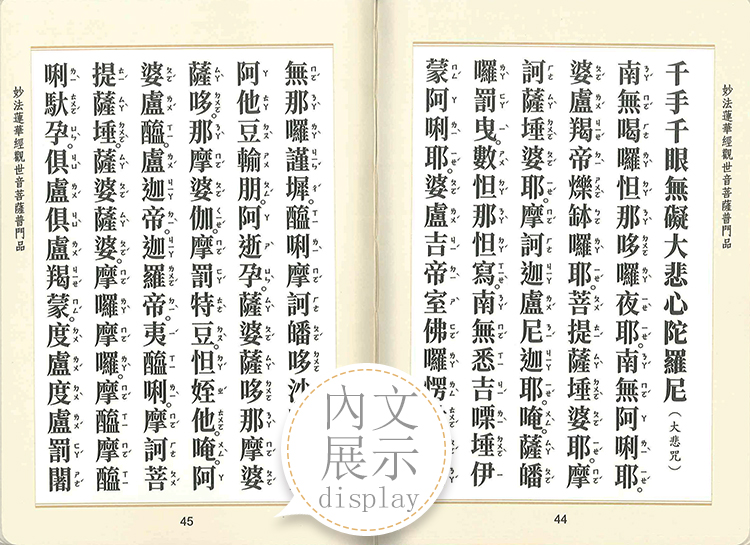 妙法蓮華經觀世音菩薩普門品
千手千眼無礙大悲心陀羅尼(大悲咒)
南無喝囉怛那哆囉夜耶。南無阿唎耶。
婆盧羯帝爍缽囉耶。菩提薩埵婆耶。摩
訶薩埵婆耶。摩訶迦盧尼迦耶。唵。薩皤
囉罰曳。數怛那怛寫。南無悉吉嘌埵伊
蒙阿唎耶。婆盧吉帝室佛囉愣
44
無那囉謹墀。醯唎摩訶皤哆沙
阿他豆輸朋。阿逝孕。薩婆薩哆那摩婆
薩哆。那摩婆伽。摩罰特豆。怛姪他。唵。阿
婆盧醯。盧迦帝。迦羅帝。夷醯唎。摩訶菩
提薩埵。薩婆薩婆。摩囉摩囉。摩醯摩醯
唎馱孕。俱盧俱盧羯蒙。度盧度盧罰闍
妙法蓮華經觀世音菩薩普門品
45
內文
展示
display